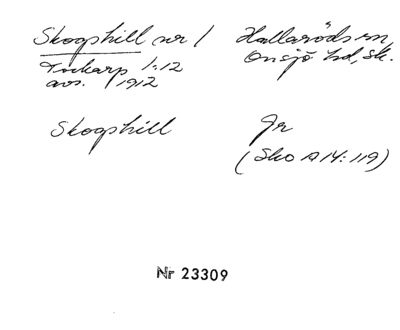 Skogshill nr 1
Hallaröds sn,
Torkarp 1:12
Onsjö hd, Sk.
avs. 1912
Skogshill
Jr
(Sko A 14:119)
Nr 23309